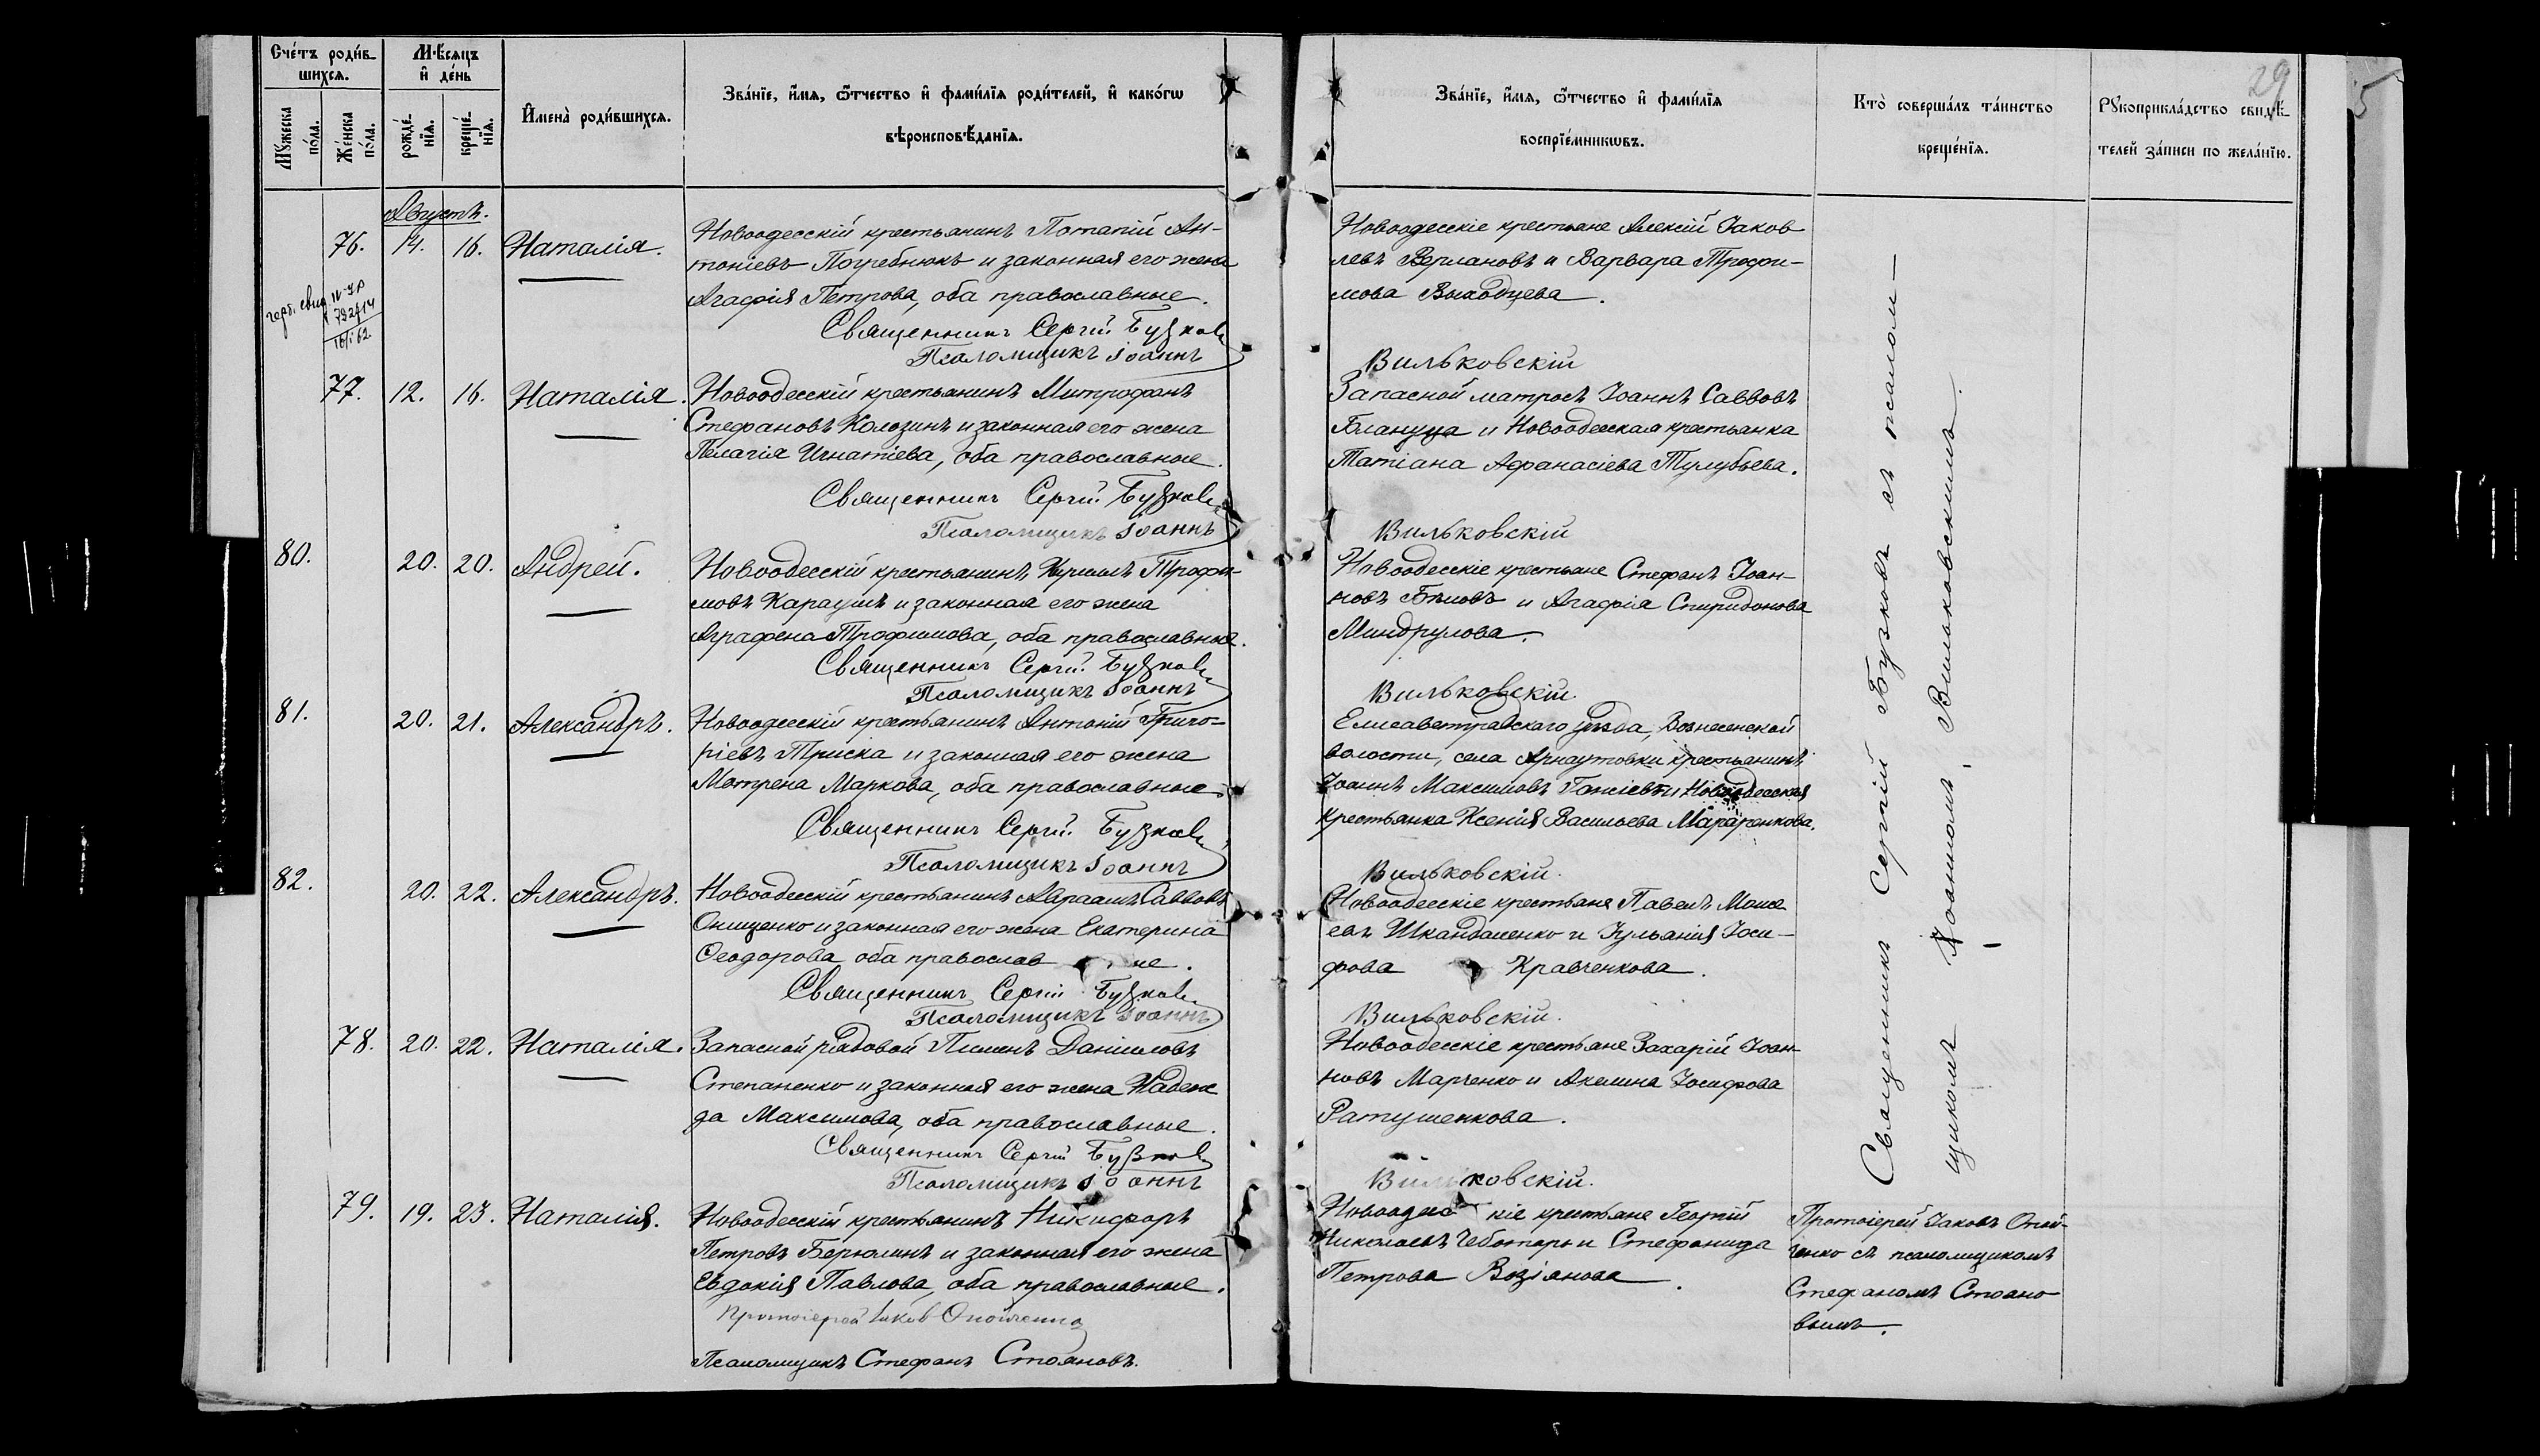 29
5
Счéтъ роди́в-
шихся.
Мѣсяцъ
и дéнь
Мýжеска
пóла.
Жéнска
пóла.
рождé-
нїя.
крещé-
нїя.
Именà роди́вшихся.
Звáнїе, и́мя, ѻ҆́тчество и фами́лїя роди́телей, и какóгѡ
вѣроисповѣ́данїя.
Звáнїе, и́мя, ѻ҆́тчество и фами́лїя
воспрїéмникѡвъ.
Ктò совершáлъ тáинство
крещéнїя.
Рꙋкоприклáдство свидѣ-
телей зáписи по желáнїю.
Августъ.
76. 14. 16. Наталія.
Новоодесскій крестьянинъ Потапій Ан-
тоніевъ Погребнюкъ и законная его жена
Агафія Петрова, оба православные.
Священникъ Сергій Бузков
Псаломщикъ Іоаннъ Вильковскій
Новоодесскіе крестьяне Алексій Іаков
левъ Верлановъ и Варвара Трофи-
мова Выходцева.
77. 12. 16. Наталія.
Новоодесскій крестьянинъ Митрофанъ
Стефановъ Колозинъ и законная его жена
Пелагія Игнатіева, оба православные.
Священникъ Сергій Бузков
Псаломщикъ Іоаннъ Вильковскій
Запасной матросъ Іоаннъ Саввовъ
Блануца и Новоодесская крестьянка
Татіана Афанасіева Тулубьева.
80. 20. 20. Андрей.
Новоодесскій крестьянинъ Кириллъ Трофи-
мовъ Караушъ и законная его жена
Аграфена Трофимова, оба православные.
Священникъ Сергій Бузков
Псаломщикъ Іоаннъ Вильковскій.
Новоодесскіе крестьяне Стефанъ Іоан-
новъ Бѣловъ и Агафія Спиридонова
Миндрулова.
81. 20. 21. Александръ.
Новоодесскій крестьянинъ Антоній Григо-
ріевъ Триска и законная его жена
Матрена Маркова, оба православные.
Священникъ Сергій Бузков
Псаломщикъ Іоаннъ Вильковскій.
Елисаветградскаго уѣзда, Вознесенской
волости, села Арнаутовки крестьянинъ
Іоаннъ Максимовъ и Новоодесская
крестьянка Ксенія Васильева Макаренкова.
82. 20. 22. Александръ.
Новоодесскій крестьянинъ Авраамъ Саввовъ
Онищенко и законная его жена Екатерина
Ѳеодорова оба православ не.
Священникъ Сергій Бузков
Псаломщикъ Іоаннъ Вильковскій.
Новоодесскіе крестьяне Павелъ Моисе
евъ Шкандаленко и Іуліанія Іоси-
фова Кравченкова.
78. 20. 22. Наталія.
Запасной рядовой Пименъ Даніиловъ
Степаненко и законная его жена Надеж
да Максимова, оба православные.
Священникъ Сергій Бузков
Псаломщикъ Іоаннъ Вильковскій.
Новоодесскіе крестьяне Захарій Іоан-
новъ Марченко и Акелина Іосифова
Ратушенкова.
Священникъ Сергій Бузковъ съ псалом-
щикомъ Іоанномъ Вильковскимъ.
79. 19. 23. Наталія.
Новоодесскій крестьянинъ Никифоръ
Петровъ Берюлинъ и законная его жена
Евдокія Павлова, оба православные.
Протоіерей Іаков Опойченко
Псаломщикъ Стефанъ Стояновъ.
Новоодес кіе крестьяне Георгій
Николаевъ Чеботарь и Стефанида
Петрова Возіянова.
Протоіерей Іаковъ Опой-
ченко съ псаломщикомъ
Стефаномъ Стояно-
вымъ.